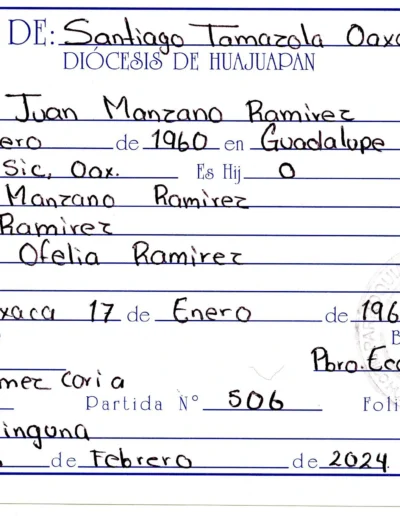 DE: Santiago Tamazola Oaxa
DIÓCESIS DE HUAJUAPAN
Juan Manzano Ramirez
ero de 1960 en Guadalupe
Sic, Oax. Es Hij O
Manzano Ramirez
Ramirez
Ofelia Ramirez
xaca 17 de Enero de 196
B
Pbro. Ec
mez Coria
Partida N° 506 Foli
inguna
de Febrero de 2024